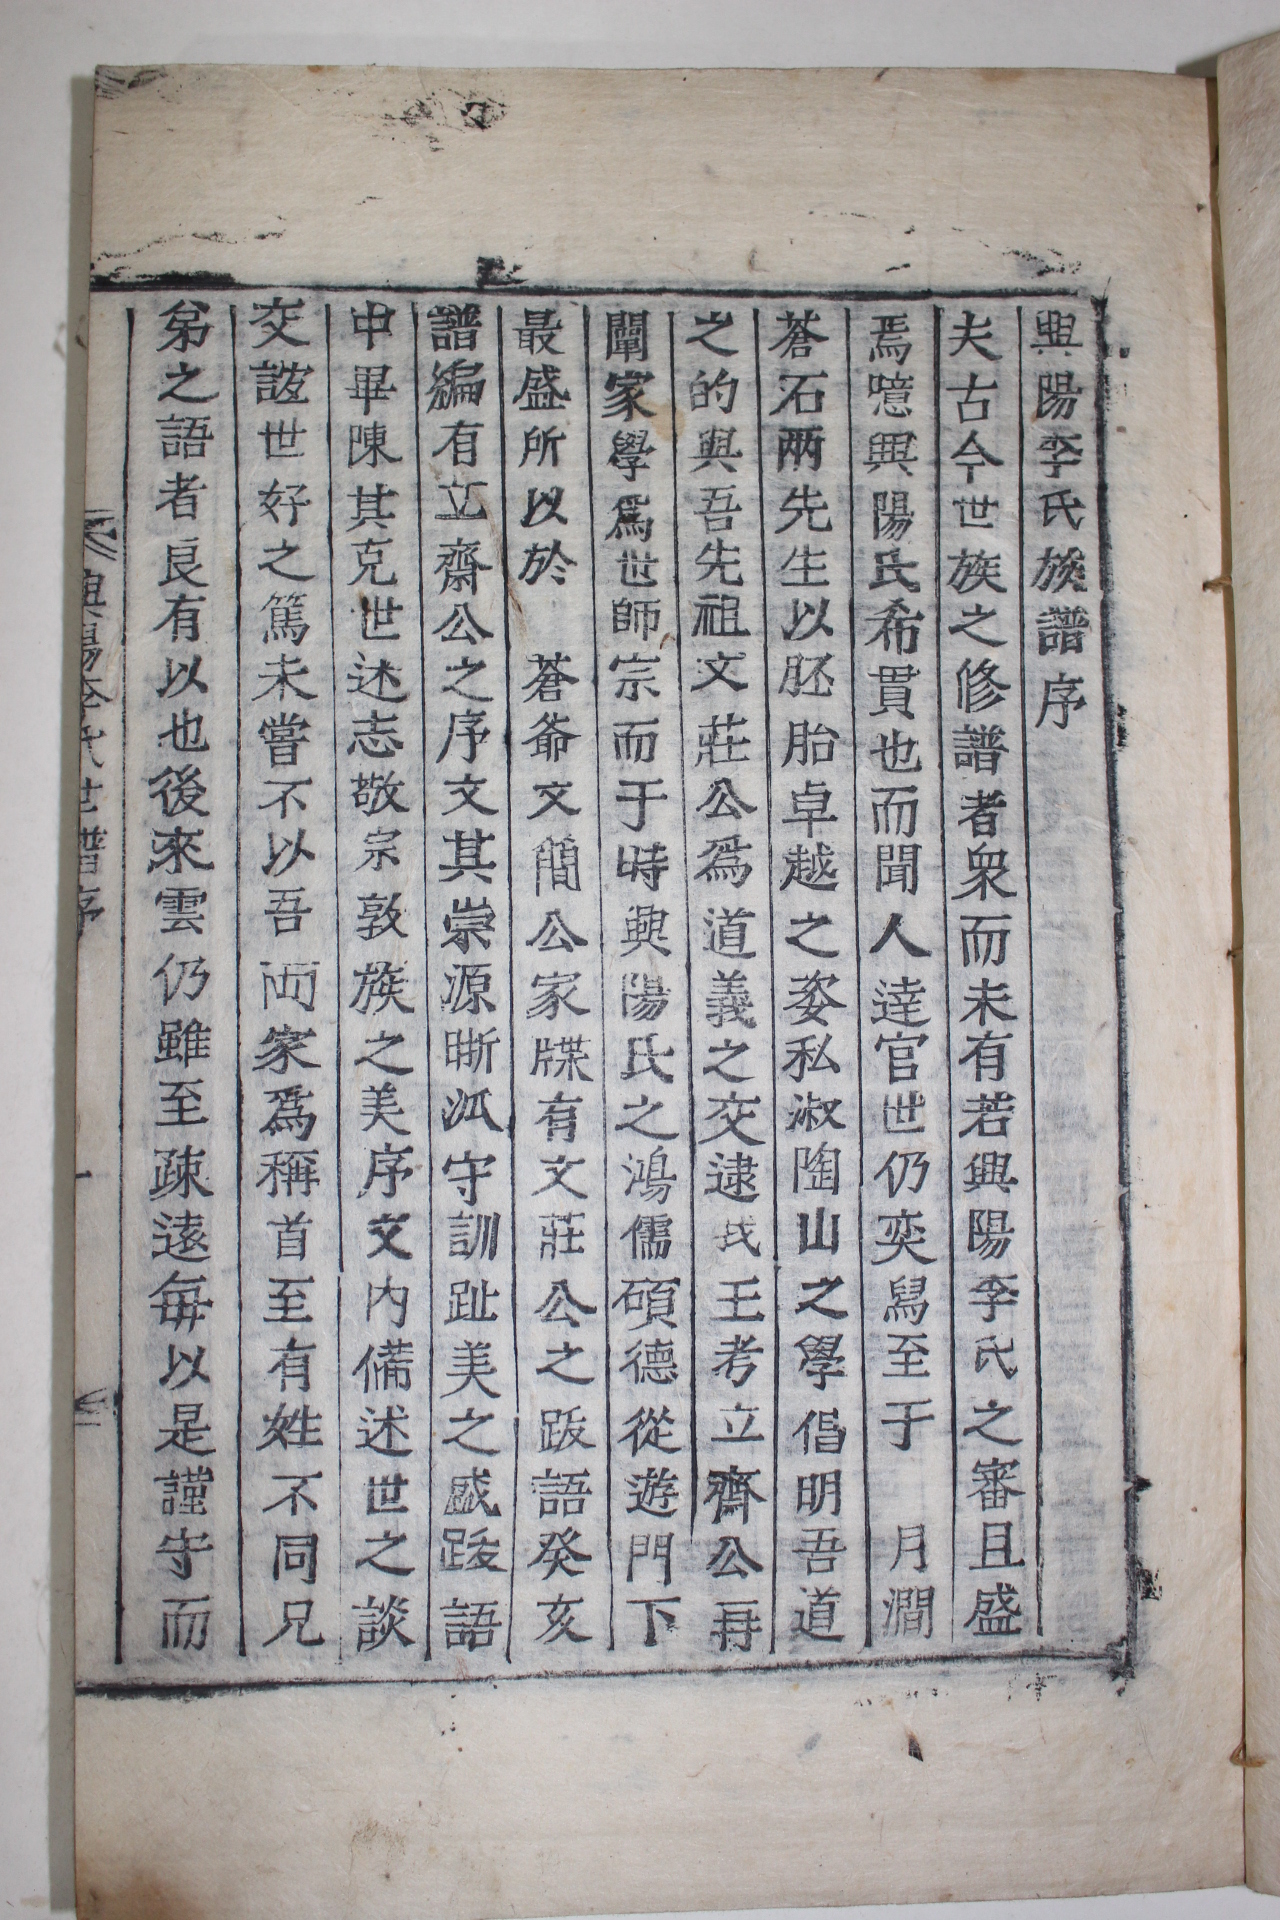 興陽李氏族譜序
夫古今世族之修譜者衆而未有若興陽李氏之審且盛
焉噫興陽氏希貫也而聞人達官世仍奕舄至于　月澗
蒼石兩先生以胚胎卓越之姿私淑陶山之學倡明吾道
之的與吾先祖文莊公爲道義之交逮我王考立齋公再
闡家學爲世師宗而于時興陽氏之鴻儒碩德從遊門下
最盛所以於　蒼爺文簡公家牒有文莊公之跋語癸亥
譜編有立齋公之序文其崇源晰派守訓趾美之盛跋語
中畢陳其克世述志敬宗敦族之美序文內備述世之談
交誼世好之篤未嘗不以吾兩家爲稱首至有姓不同兄
弟之語者良有以也後來雲仍雖至疎遠每以是謹守而
興陽李氏世譜序
一